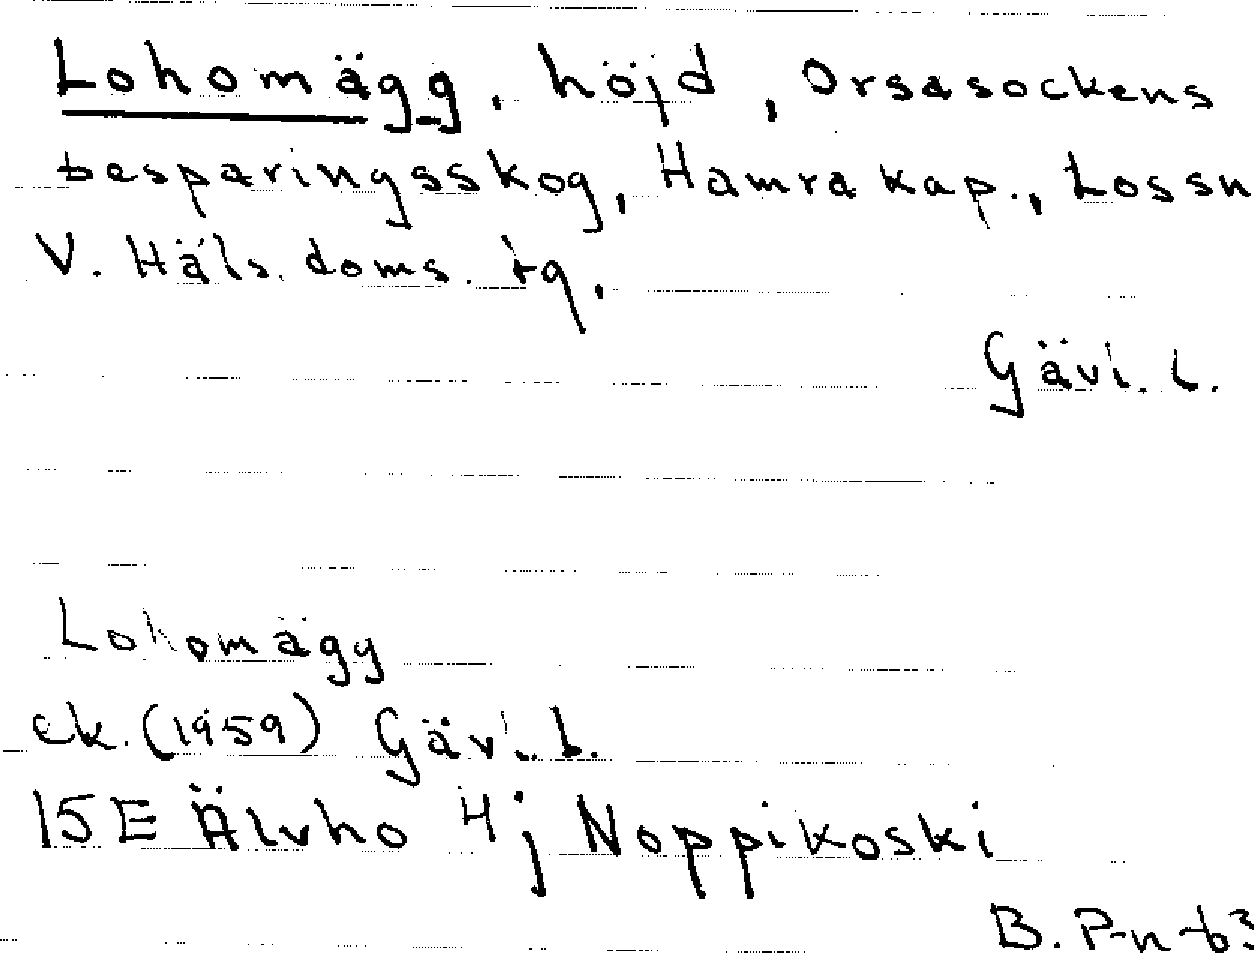 Lohomägg, höjd, Orsasockens
besparingsskog, Hamra kap., Lossn
V. Häls. doms. tg.
Gävl. L.
Lohomägg
ek. (1959) Gävl. L.
15E Älvho 4j Noppikoski
B. P-n -63